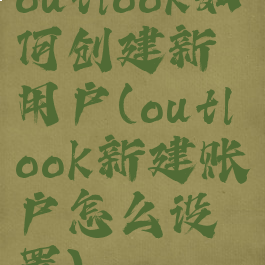 outlook如
何创建新
用户(outl
ook新建账
户怎么设
置)